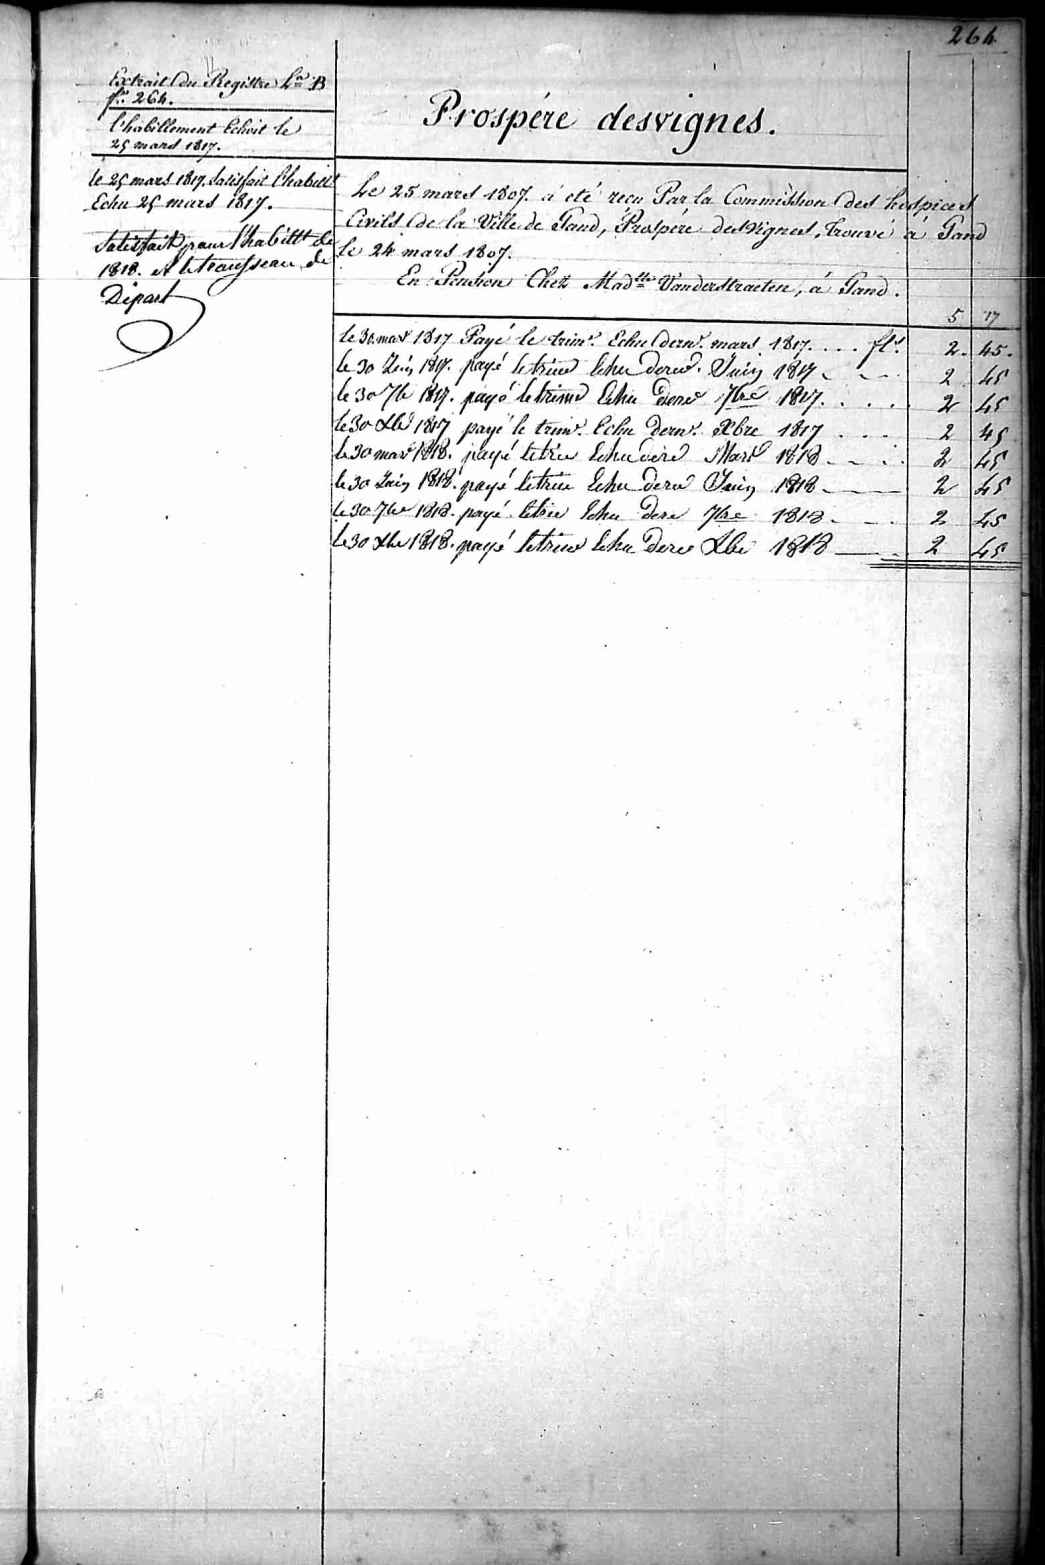 264
Extrait du Registre L.ra B
f.o 264.
l'habillement Echoit le
25 mars 1817.
le 25 mars 1817. Satisfait l'habill.t
Echu 25 mars 1817.
Satisfait pour l'habillt de
1818. et le trousseau de
Départ
Prospére desvignes.
Le 25 mars 1807. a été recu Par la Commission des hospices
Civils de la Ville de Gand, Prospére desvignes, trouvé à Gand
le 24 mars 1807.
En Pension Chez Mad.lle Vanderstraeten, à Gand.
5 17
le 30. mars 1817 Payé le trim.e Echu dern.r mars 1817. . . . fl.s 2. 45.
le 30 Juin 1817. payé le trime Echu derne. Juin 1817 2 45
le 30 7bre 1817. payé le trime Echu derne 7bre 1817. . . . 2 45
le 30 Xbre 1817 payé le trim.e Echu dern.r Xbre 1817 . . . 2 45
le 30 mars 1818. payé le trie Echu dere Mars 1818 2 45
le 30 Juin 1818. payé le trie Echu dere Juin 1818 2 45
le 30 7bre 1818. payé le trie Echu dere 7bre 1818. 2 45
le 30 Xbre 1818. payé le trie Echu dere Xbre 1818 2 45